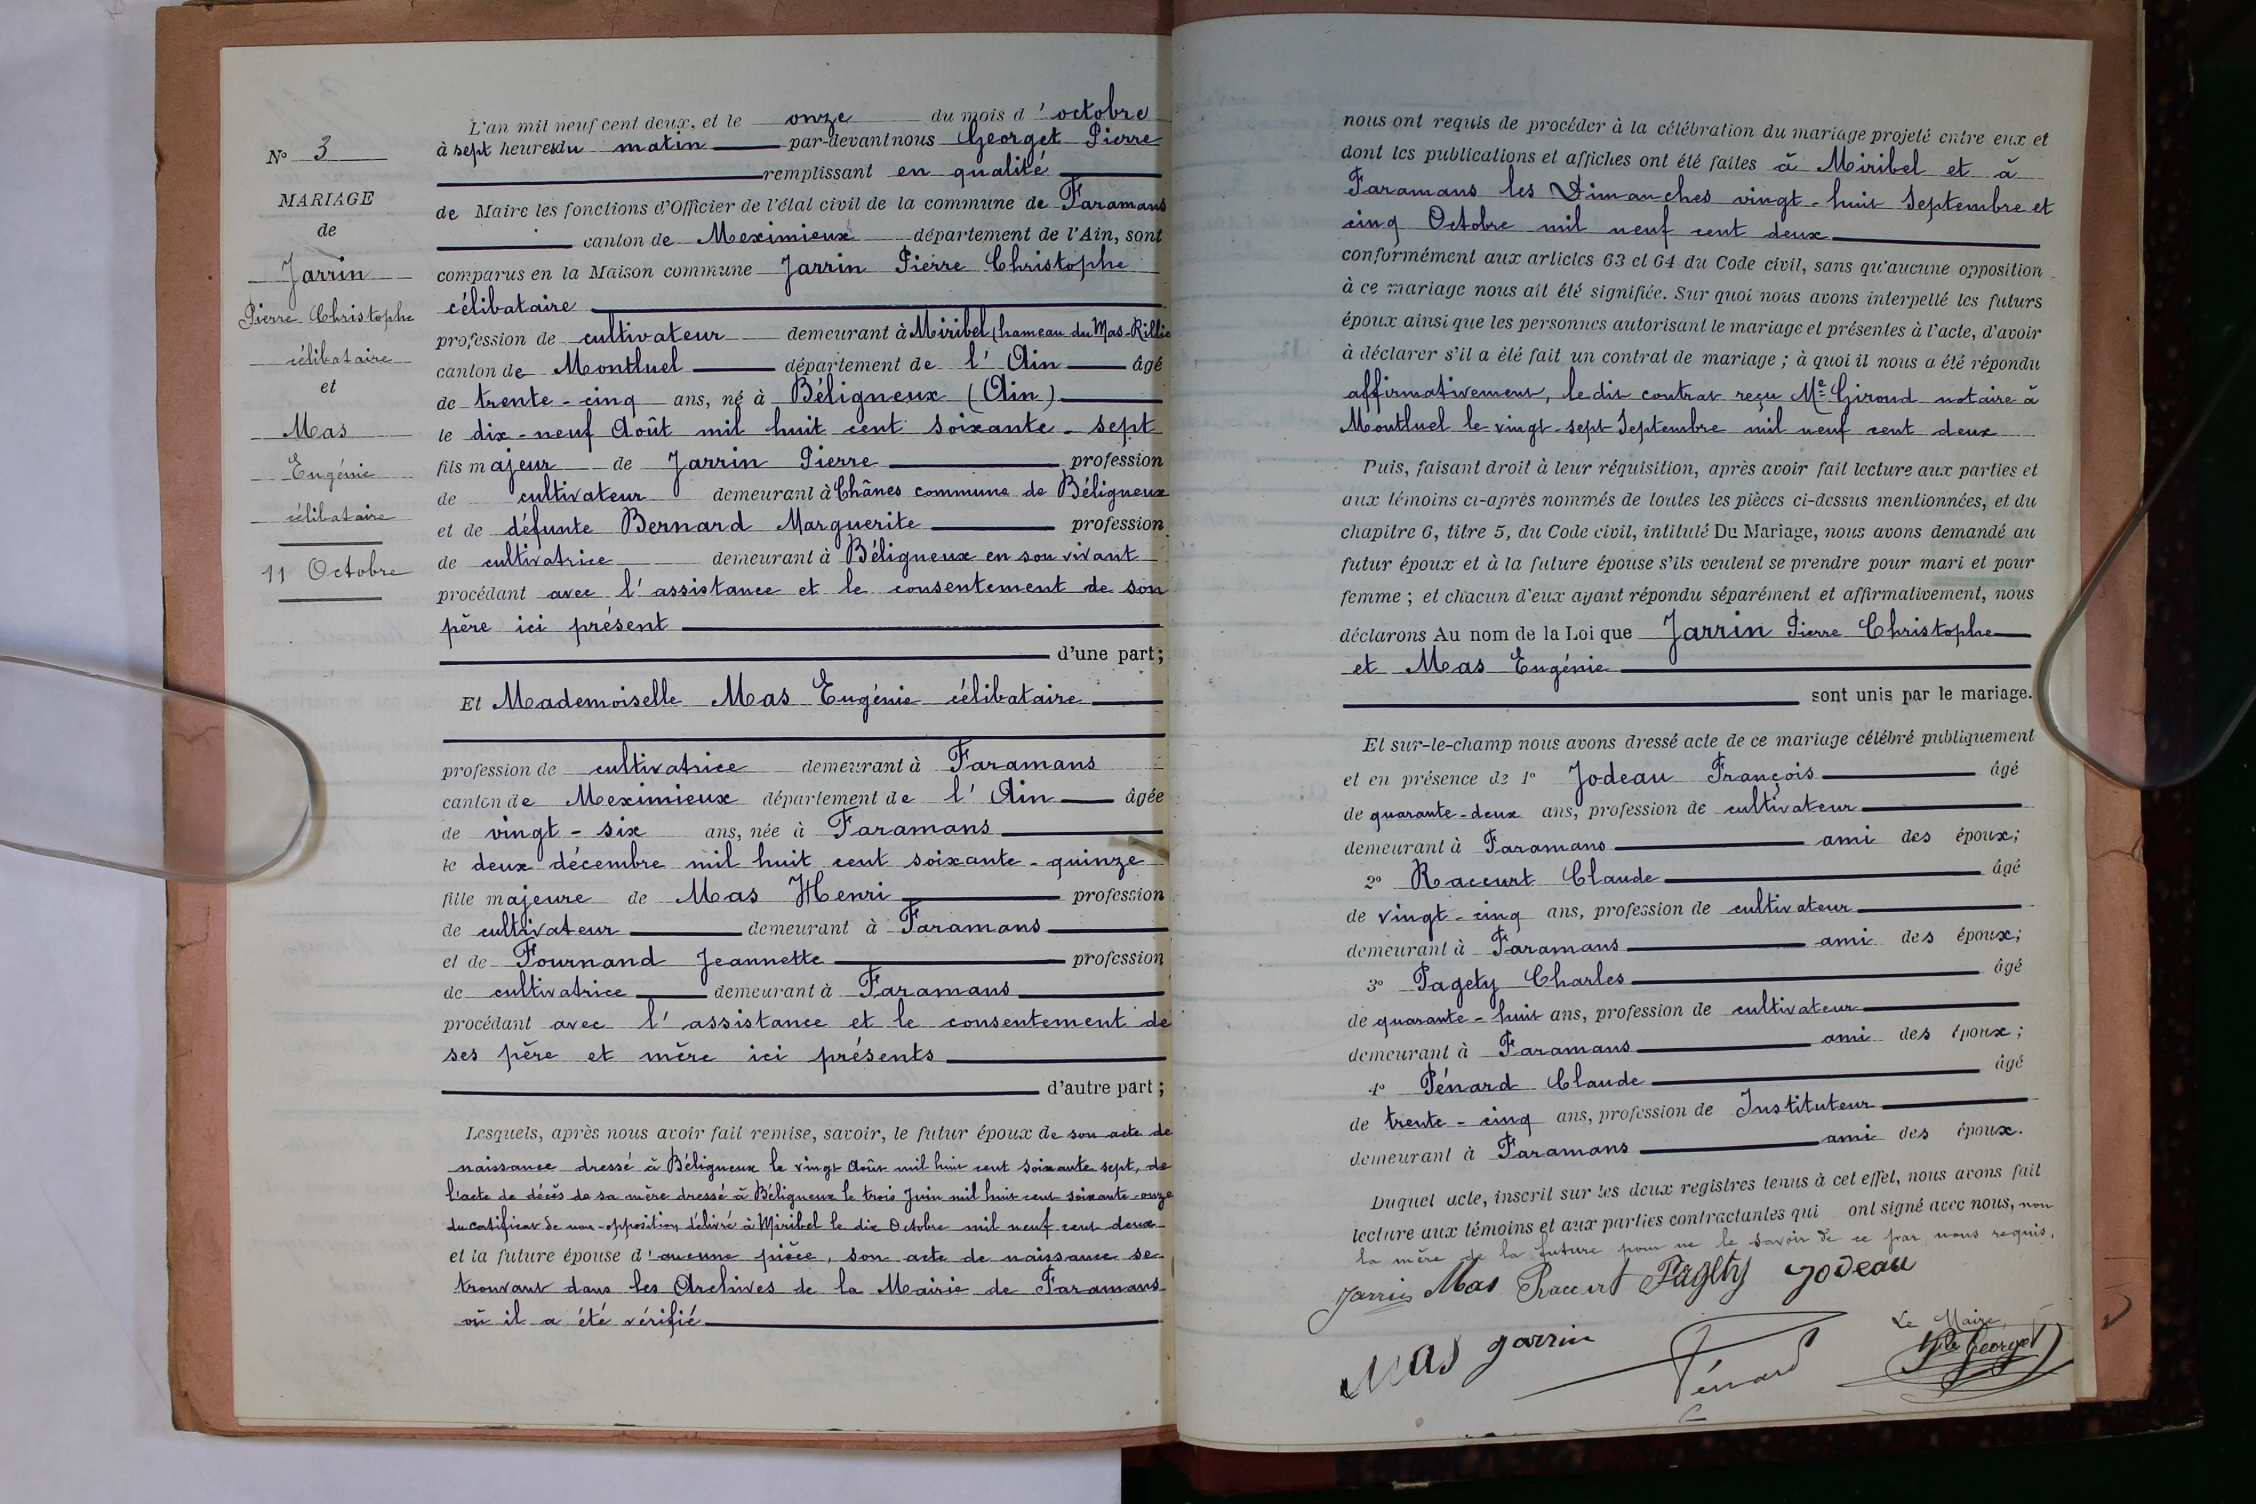 N° 3
MARIAGE
de
Jarrin
Pierre Christophe
célibataire
et
Mas
Eugénie
célibataire
11 Octobre
L'an mil neuf cent deux, et le onze du mois d'octobre
à sept heures du matin par-devant nous Georget Pierre
remplissant en qualité
de Maire les fonctions d'Officier de l'état civil de la commune de Faramans
canton de Meximieux département de l'Ain, sont
comparus en la Maison commune Jarrin Pierre Christophe
célibataire
profession de cultivateur demeurant à Miribel (hameau du Mas-Rillier
canton de Montluel département de l'Ain âgé
de trente-cinq ans, né à Béligneux (Ain)
le dix-neuf Août mil huit cent soixante-sept
fils majeur de Jarrin Pierre profession
de cultivateur demeurant à Chânes commune de Béligneux
et de défunte Bernard Marguerite profession
de cultivatrice demeurant à Béligneux en son vivant
procédant avec l'assistance et le consentement de son
père ici présent
d'une part;
Et Mademoiselle Mas Eugénie célibataire
profession de cultivatrice demeurant à Faramans
canton de Meximieux département de l'Ain âgée
de vingt-six ans, née à Faramans
le deux décembre mil huit cent soixante-quinze
fille majeure de Mas Henri profession
de cultivateur demeurant à Faramans
et de Fournand Jeannette profession
de cultivatrice demeurant à Faramans
procédant avec l'assistance et le consentement de
ses père et mère ici présents
d'autre part;
Lesquels, après nous avoir fait remise, savoir, le futur époux de son acte de
naissance dressé à Béligneux le vingt Août mil huit cent soixante sept, de
l'acte de décès de sa mère dressé à Béligneux le trois Juin mil huit cent soixante-onze
du certificat de non-opposition délivré à Miribel le dix Octobre mil neuf cent deux
et la future épouse d'aucune pièce, son acte de naissance se
trouvant dans les Archives de la Mairie de Faramans
où il a été vérifié
nous ont requis de procéder à la célébration du mariage projeté entre eux et
dont les publications et affiches ont été faites à Miribel et à
Faramans les Dimanches vingt-huit Septembre et
cinq Octobre mil neuf cent deux
conformément aux articles 63 et 64 du Code civil, sans qu'aucune opposition
à ce mariage nous ait été signifiée. Sur quoi nous avons interpellé les futurs
époux ainsi que les personnes autorisant le mariage et présentes à l'acte, d'avoir
à déclarer s'il a été fait un contrat de mariage; à quoi il nous a été répondu
affirmativement, le dit contrat reçu Me Giroud notaire à
Montluel le vingt-sept Septembre mil neuf cent deux
Puis, faisant droit à leur réquisition, après avoir fait lecture aux parties et
aux témoins ci-après nommés de toutes les pièces ci-dessus mentionnées, et du
chapitre 6, titre 5, du Code civil, intitulé Du Mariage, nous avons demandé au
futur époux et à la future épouse s'ils veulent se prendre pour mari et pour
femme; et chacun d'eux ayant répondu séparément et affirmativement, nous
déclarons Au nom de la Loi que Jarrin Pierre Christophe
et Mas Eugénie
sont unis par le mariage.
Et sur-le-champ nous avons dressé acte de ce mariage célébré publiquement
et en présence de 1° Jodeau François âgé
de quarante-deux ans, profession de cultivateur
demeurant à Faramans ami des époux;
2° Raccurt Claude âgé
de vingt-cinq ans, profession de cultivateur
demeurant à Faramans ami des époux;
3° Pagety Charles âgé
de quarante-huit ans, profession de cultivateur
demeurant à Faramans ami des époux;
4° Pénard Claude âgé
de trente-cinq ans, profession de Instituteur
demeurant à Faramans ami des époux.
Duquel acte, inscrit sur les deux registres tenus à cet effet, nous avons fait
lecture aux témoins et aux parties contractantes qui ont signé avec nous, non
la mère de la future pour ne le savoir de ce par nous requis.
Jarrin Mas Raccurt Pagety Jodeau
Le Maire,
Mas Jarrin Pénard Georget